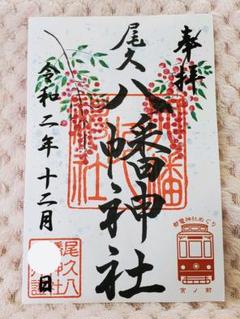 奉拝
尾久八幡神社
令和二年十二月 日
都電神社めぐり
宮ノ前